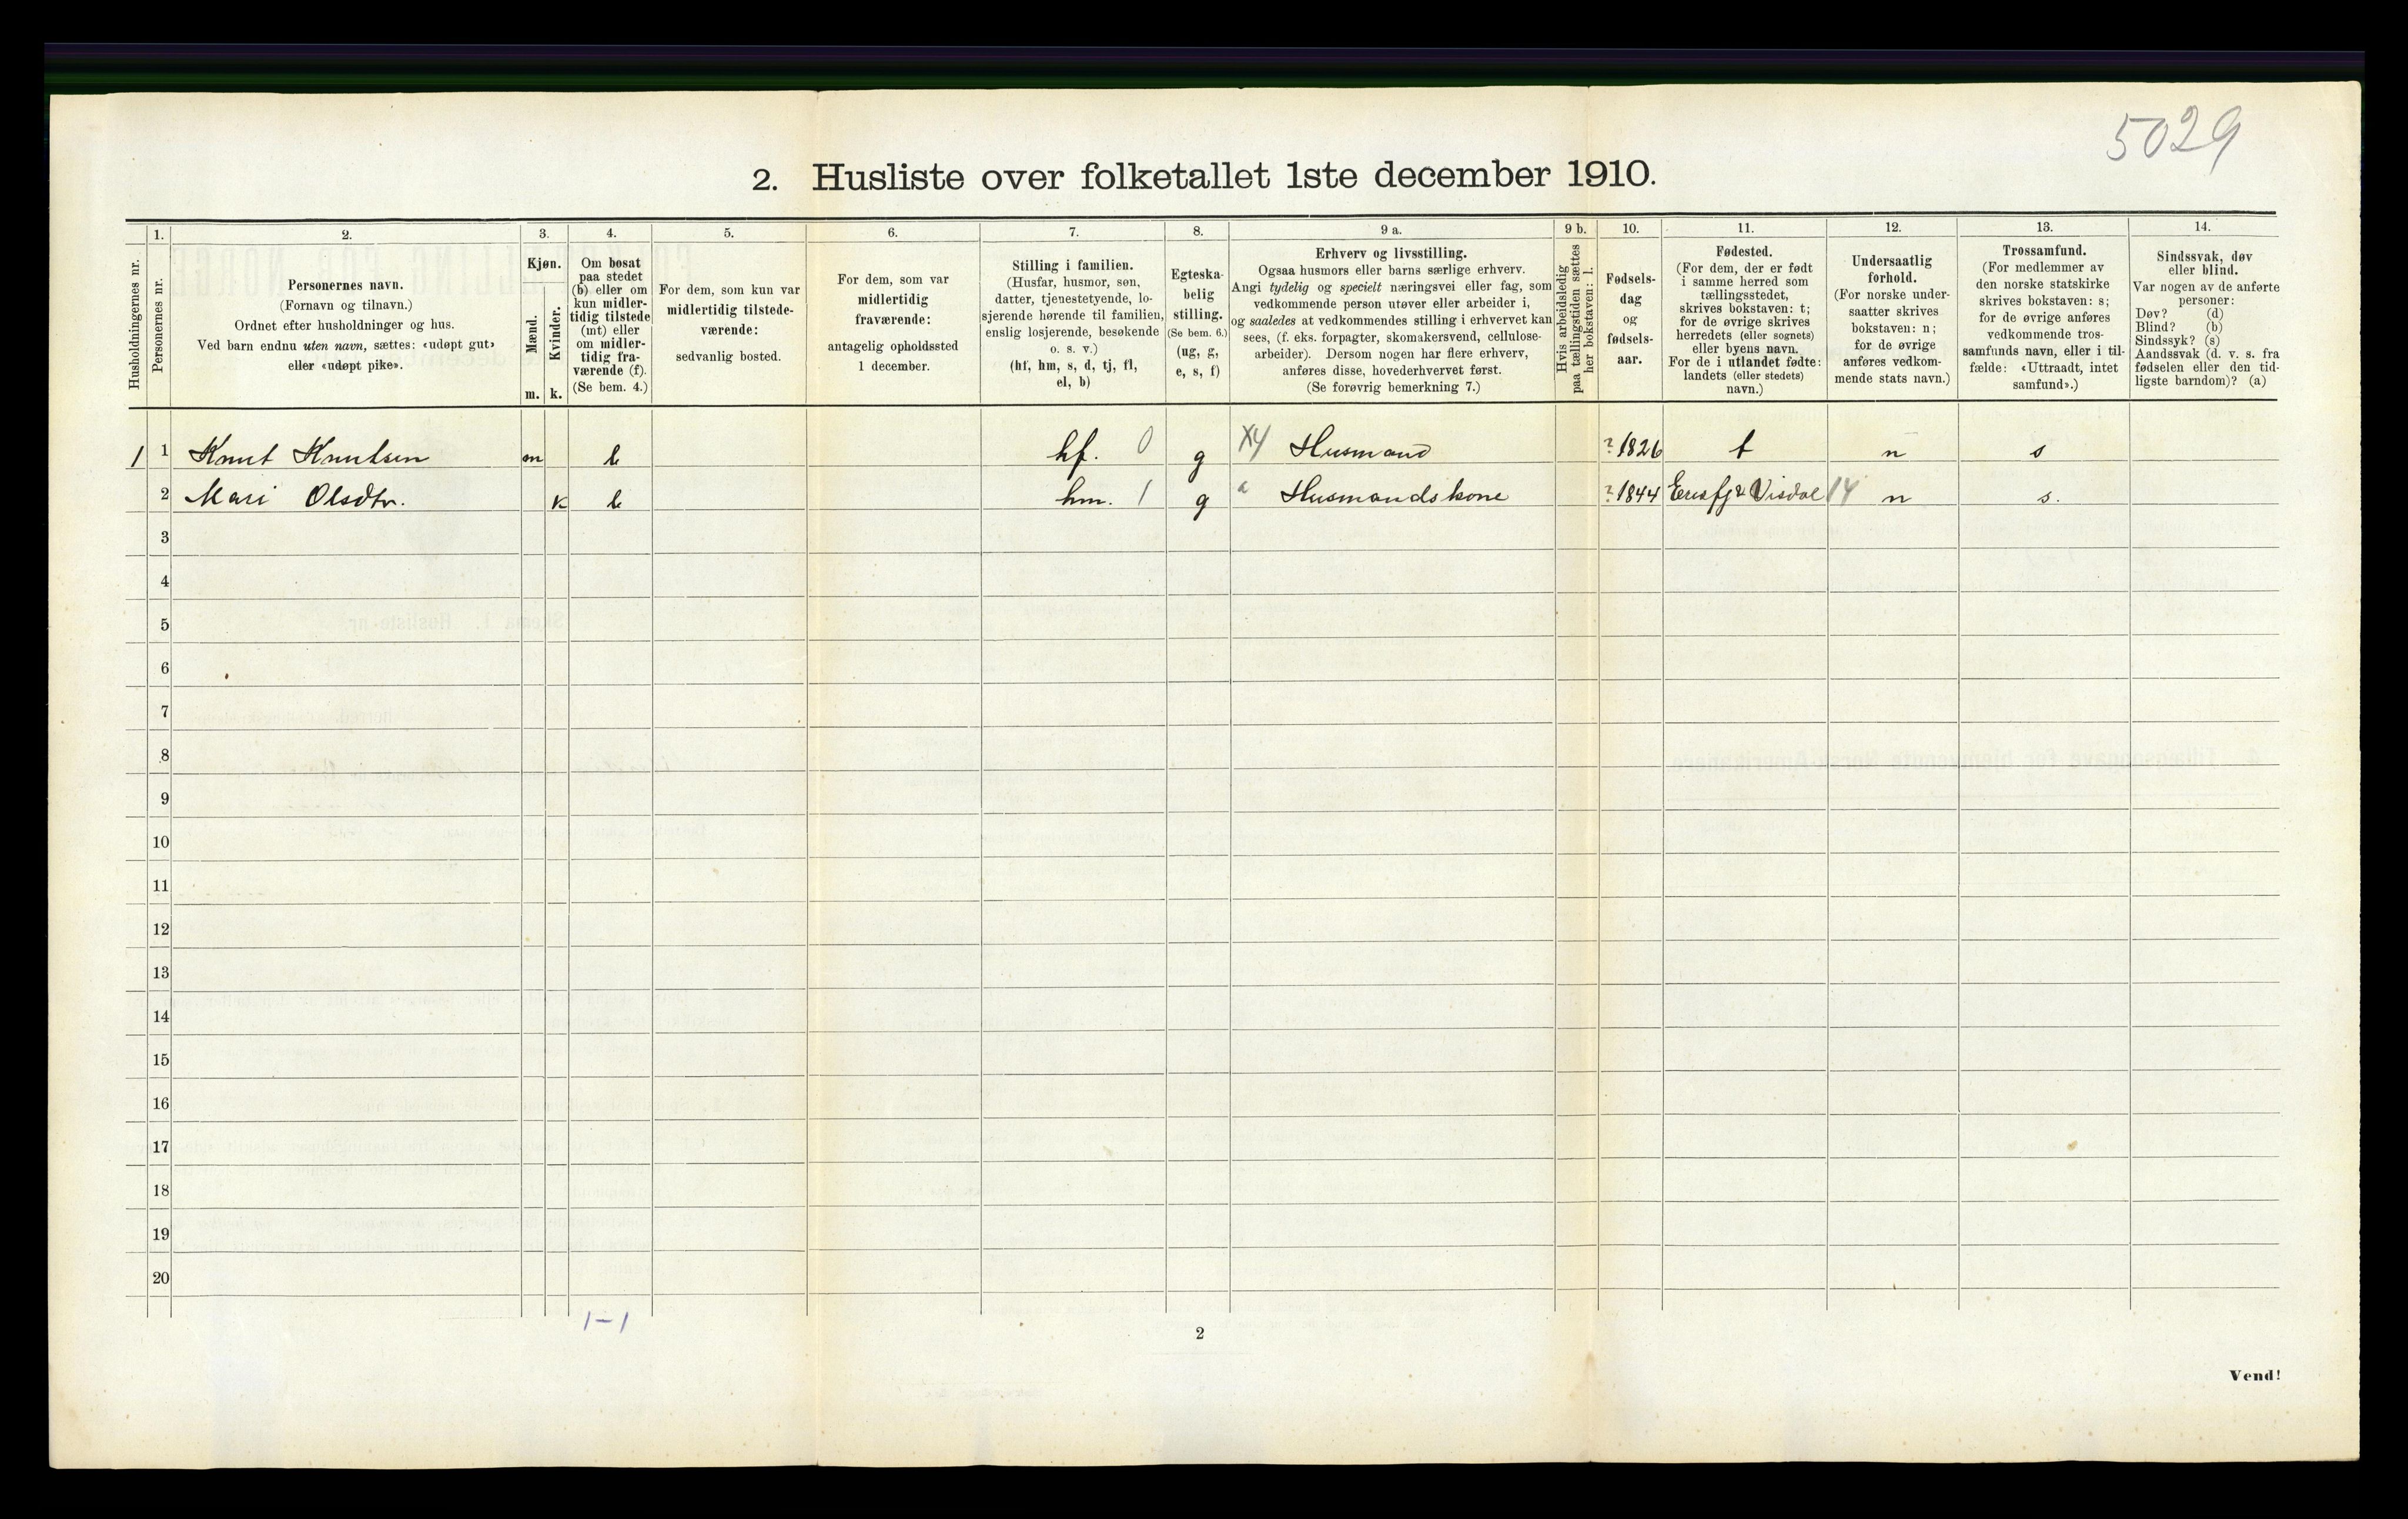 5029
2. Husliste over folketallet 1ste december 1910.
Husholdningernes nr.
1.
Personernes nr.
2.
Personernes navn.
(Fornavn og tilnavn.)
Ordnet efter husholdninger og hus.
Ved barn endnu uten navn, sættes: «udøpt gut»
eller «udøpt pike».
3.
Kjøn.
Mænd.
Kvinder.
m. k.
4.
Om bosat
paa stedet
(b) eller om
kun midler-
tidig tilstede
(mt) eller
om midler-
tidig fra-
værende (f).
(Se bem. 4.)
5.
For dem, som kun var
midlertidig tilstede-
værende:
sedvanlig bosted.
6.
For dem, som var
midlertidig
fraværende:
antagelig opholdssted
1 december.
7.
Stilling i familien.
(Husfar, husmor, søn,
datter, tjenestetyende, lo-
sjerende hørende til familien,
enslig losjerende, besøkende
o. s. v.)
(hf, hm, s, d, tj, fl,
el, b)
8.
Egteska-
belig
stilling.
(Se bem. 6.)
(ug, g,
e, s, f)
9 a.
Erhverv og livsstilling.
Ogsaa husmors eller barns særlige erhverv.
Angi tydelig og specielt næringsvei eller fag, som
vedkommende person utøver eller arbeider i,
og saaledes at vedkommendes stilling i erhvervet kan
sees, (f. eks. forpagter, skomakersvend, cellulose-
arbeider). Dersom nogen har flere erhverv,
anføres disse, hovederhvervet først.
(Se forøvrig bemerkning 7.)
9 b.
Hvis arbeidsledig
paa tællingstiden sættes
her bokstaven: l.
10.
Fødsels-
dag
og
fødsels-
aar.
11.
Fødested.
(For dem, der er født
i samme herred som
tællingsstedet,
skrives bokstaven: t;
for de øvrige skrives
herredets (eller sognets)
eller byens navn.
For de i utlandet fødte:
landets (eller stedets)
navn.)
12.
Undersaatlig
forhold.
(For norske under-
saatter skrives
bokstaven: n;
for de øvrige
anføres vedkom-
mende stats navn.)
13.
Trossamfund.
(For medlemmer av
den norske statskirke
skrives bokstaven: s;
for de øvrige anføres
vedkommende tros-
samfunds navn, eller i til-
fælde: «Uttraadt, intet
samfund».)
14.
Sindssvak, døv
eller blind.
Var nogen av de anførte
personer:
Døv? (d)
Blind? (b)
Sindssyk? (s)
Aandssvak (d. v. s. fra
fødselen eller den tid-
ligste barndom)? (a)
1 1 Knut Knutsen m b hf. 0 g X4 Husmand ? 1826 t n s
2 Mari Olsdtr. k b hm. 1 g a Husmandskone ? 1844 Eresfj & Visdal 14 n s.
3
4
5
6
7
8
9
10
11
12
13
14
15
16
17
18
19
20
1-1
2
Vend!